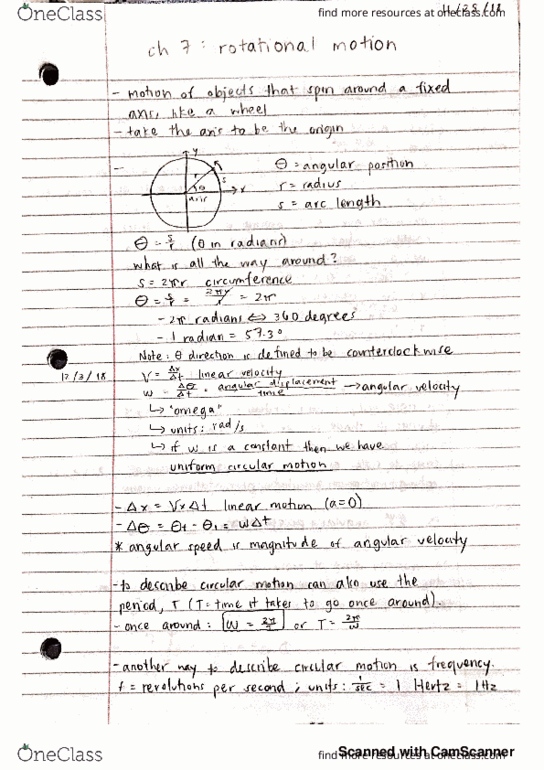 OneClass
find more resources at oneclass.com
ch 7: rotational motion
- motion of objects that spin around a fixed
axis, like a wheel
- take the axis to be the origin
y
r
s
θ
x
axis
θ = angular position
r = radius
s = arc length
θ = s/r (θ in radians)
what is all the way around?
s = 2πr circumference
θ = s/r = 2πr/r = 2π
- 2π radians ⇔ 360 degrees
- 1 radian = 57.3°
Note: θ direction is defined to be counterclockwise
12/3/18
V = Δx/Δt linear velocity
ω = Δθ/Δt = angular displacement/time → angular velocity
↳ "omega"
↳ units: rad/s
↳ if ω is a constant then we have
uniform circular motion
- Δx = Vx Δt linear motion (a=0)
- Δθ = θf - θi = ωΔt
* angular speed is magnitude of angular velocity
- to describe circular motion can also use the
period, T (T = time it takes to go once around).
- once around: ω = 2π/T or T = 2π/ω
- another way to describe circular motion is frequency.
f = revolutions per second ; units: 1/sec = 1 Hertz = 1Hz
OneClass
find more resources at oneclass.com
Scanned with CamScanner